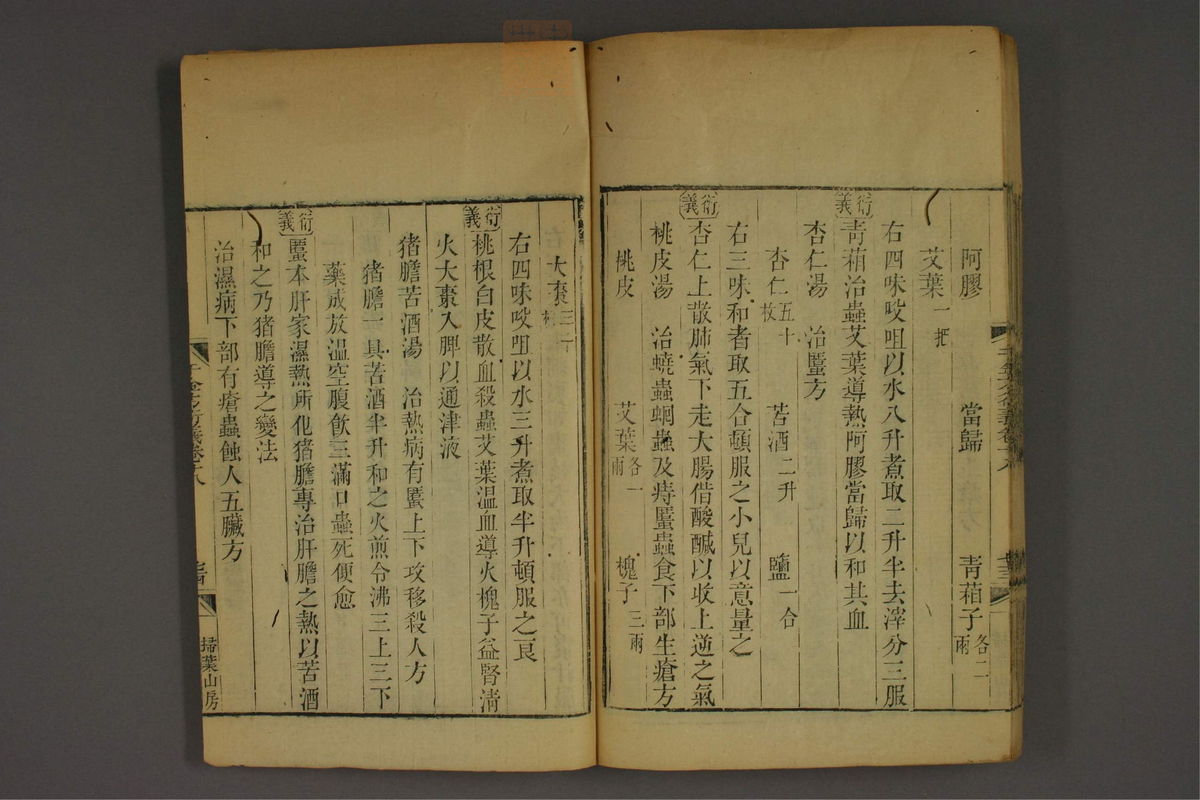 阿膠 當歸 青葙子各二兩
艾葉一把
右四味㕮咀以水八升煮取二升半去滓分三服
衍義
青葙治蟲艾葉導熱阿膠當歸以和其血
杏仁湯 治䘌方
杏仁五十枚 苦酒二升 鹽一合
右三味和煮取五合頓服之小兒以意量之
衍義
杏仁上散肺氣下走大腸借酸鹹以收上逆之氣
桃皮湯 治蟯蟲蛔蟲及痔䘌蟲食下部生瘡方
桃皮 艾葉各一兩 槐子三兩
大棗三十枚
右四味㕮咀以水三升煮取半升頓服之良
衍義
桃根白皮散血殺蟲艾葉溫血導火槐子益腎清
火大棗入脾以通津液
猪膽苦酒湯 治熱病有䘌上下攻移殺人方
猪膽一具苦酒半升和之火煎令沸三上三下
藥成放溫空腹飲三滿口蟲死便愈
衍義
䘌本肝家濕熱所化猪膽專治肝膽之熱以苦酒
和之乃猪膽導之變法
治濕病下部有瘡蟲蝕人五臟方
千金方衍義卷十八
掃葉山房